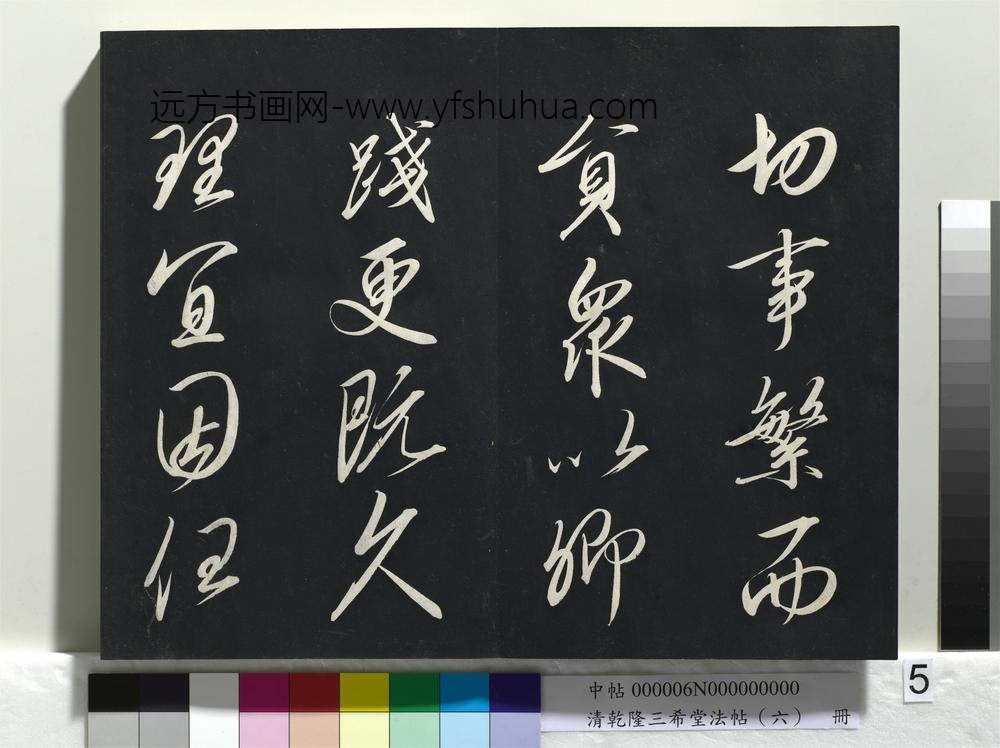 切事繁而
員衆以卿
踐更既久
理宜因任
远方书画网-www.yfshuhua.com
5
中帖 000006N000000000
清乾隆三希堂法帖（六） 冊